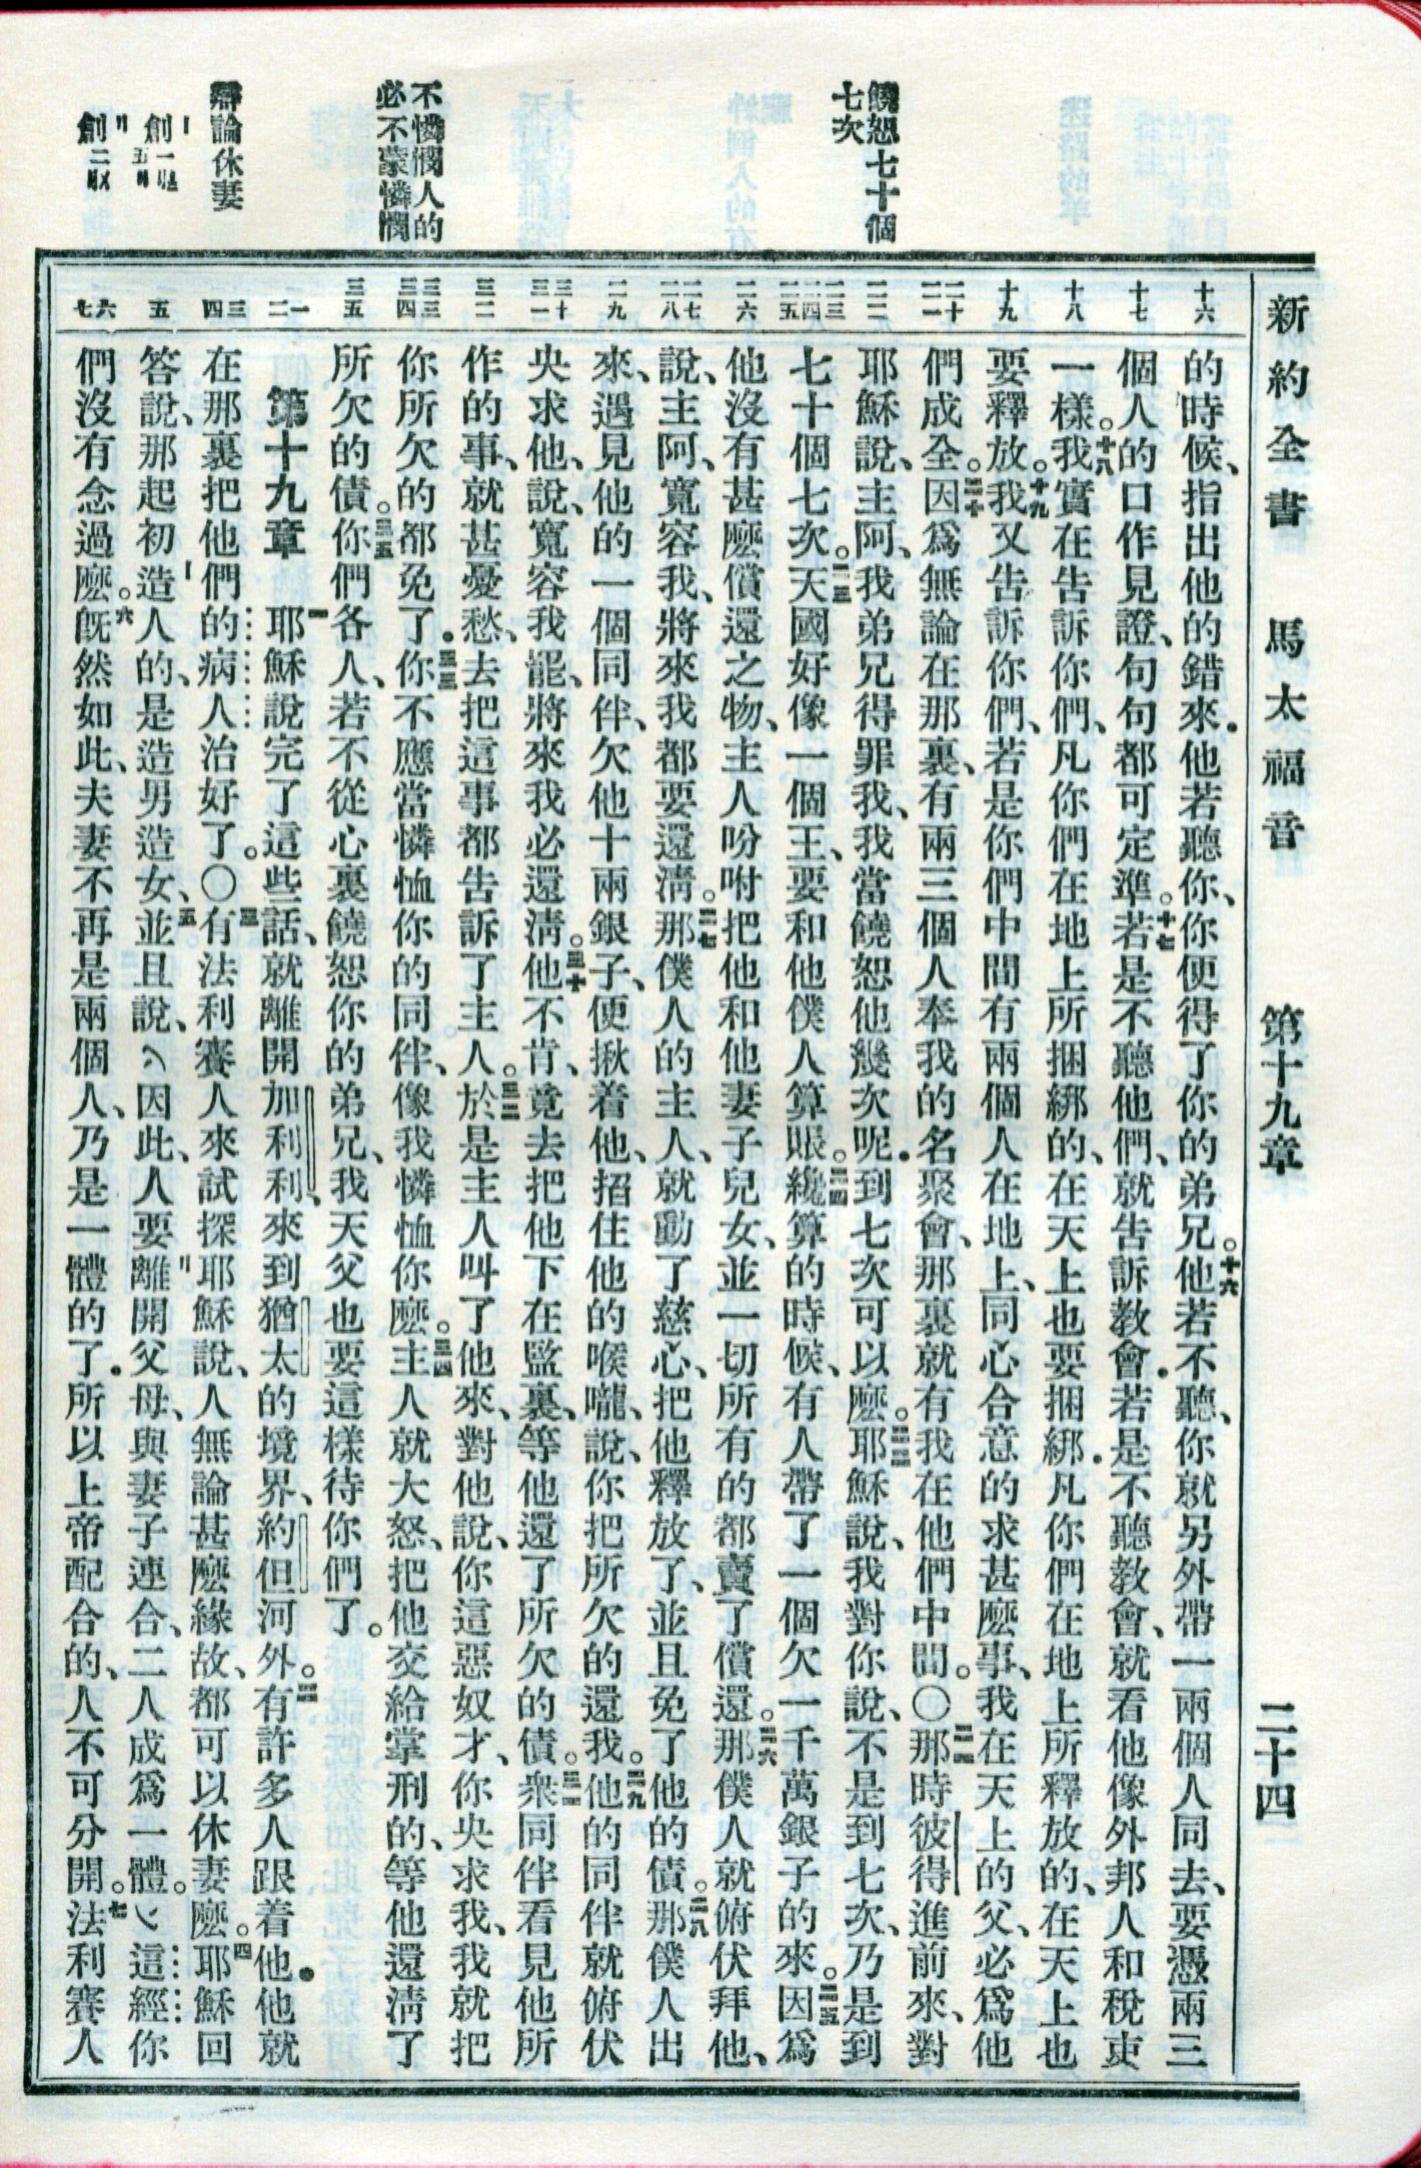 新約全書 馬太福音 第十九章 二十四
饒恕七十個
七次
不憐憫人的
必不蒙憐憫
辯論休妻
創一
五
創二
十六
十七
十八
十九
二十
二一
二二
二三
二四
二五
二六
二七
二八
二九
三十
三一
三二
三三
三四
三五
一
二
三
四
五
六
七
的時候、指出他的錯來．他若聽你、你便得了你的弟兄。十六他若不聽、你就另外帶一兩個人同去、要憑兩三
個人的口作見證、句句都可定準。十七若是不聽他們、就告訴教會．若是不聽教會、就看他像外邦人和稅吏
一樣。十八我實在告訴你們、凡你們在地上所捆綁的、在天上也要捆綁．凡你們在地上所釋放的、在天上也
要釋放。十九我又告訴你們、若是你們中間有兩個人在地上、同心合意的求甚麼事、我在天上的父、必爲他
們成全。二十因爲無論在那裏、有兩三個人奉我的名聚會、那裏就有我在他們中間。〇二一那時彼得進前來、對
耶穌說、主阿、我弟兄得罪我、我當饒恕他幾次呢．到七次可以麼。二二耶穌說、我對你說、不是到七次、乃是到
七十個七次。二三天國好像一個王、要和他僕人算賬。二四纔算的時候、有人帶了一個欠一千萬銀子的來。二五因爲
他沒有甚麼償還之物、主人吩咐把他和他妻子兒女、並一切所有的都賣了償還。二六那僕人就俯伏拜他、
說、主阿、寬容我、將來我都要還淸。二七那僕人的主人、就動了慈心、把他釋放了、並且免了他的債。二八那僕人出
來、遇見他的一個同伴、欠他十兩銀子、便揪着他、掐住他的喉嚨、說、你把所欠的還我。二九他的同伴就俯伏
央求他、說、寬容我罷、將來我必還淸。三十他不肯、竟去把他下在監裏、等他還了所欠的債。三一衆同伴看見他所
作的事、就甚憂愁、去把這事都告訴了主人。三二於是主人叫了他來、對他說、你這惡奴才、你央求我、我就把
你所欠的都免了．三三你不應當憐恤你的同伴、像我憐恤你麼。三四主人就大怒、把他交給掌刑的、等他還淸了
所欠的債。三五你們各人、若不從心裏饒恕你的弟兄、我天父也要這樣待你們了。
第十九章 一耶穌說完了這些話、就離開加利利、來到猶太的境界、約但河外。二有許多人跟着他．他就
在那裏把他們的病人治好了。〇三有法利賽人來試探耶穌說、人無論甚麼緣故、都可以休妻麼。四耶穌回
答說、那起初造人的、是造男造女、五並且說、因此、人要離開父母、與妻子連合、二人成爲一體。這經你
們沒有念過麼。六旣然如此、夫妻不再是兩個人、乃是一體的了．所以上帝配合的、人不可分開。七法利賽人